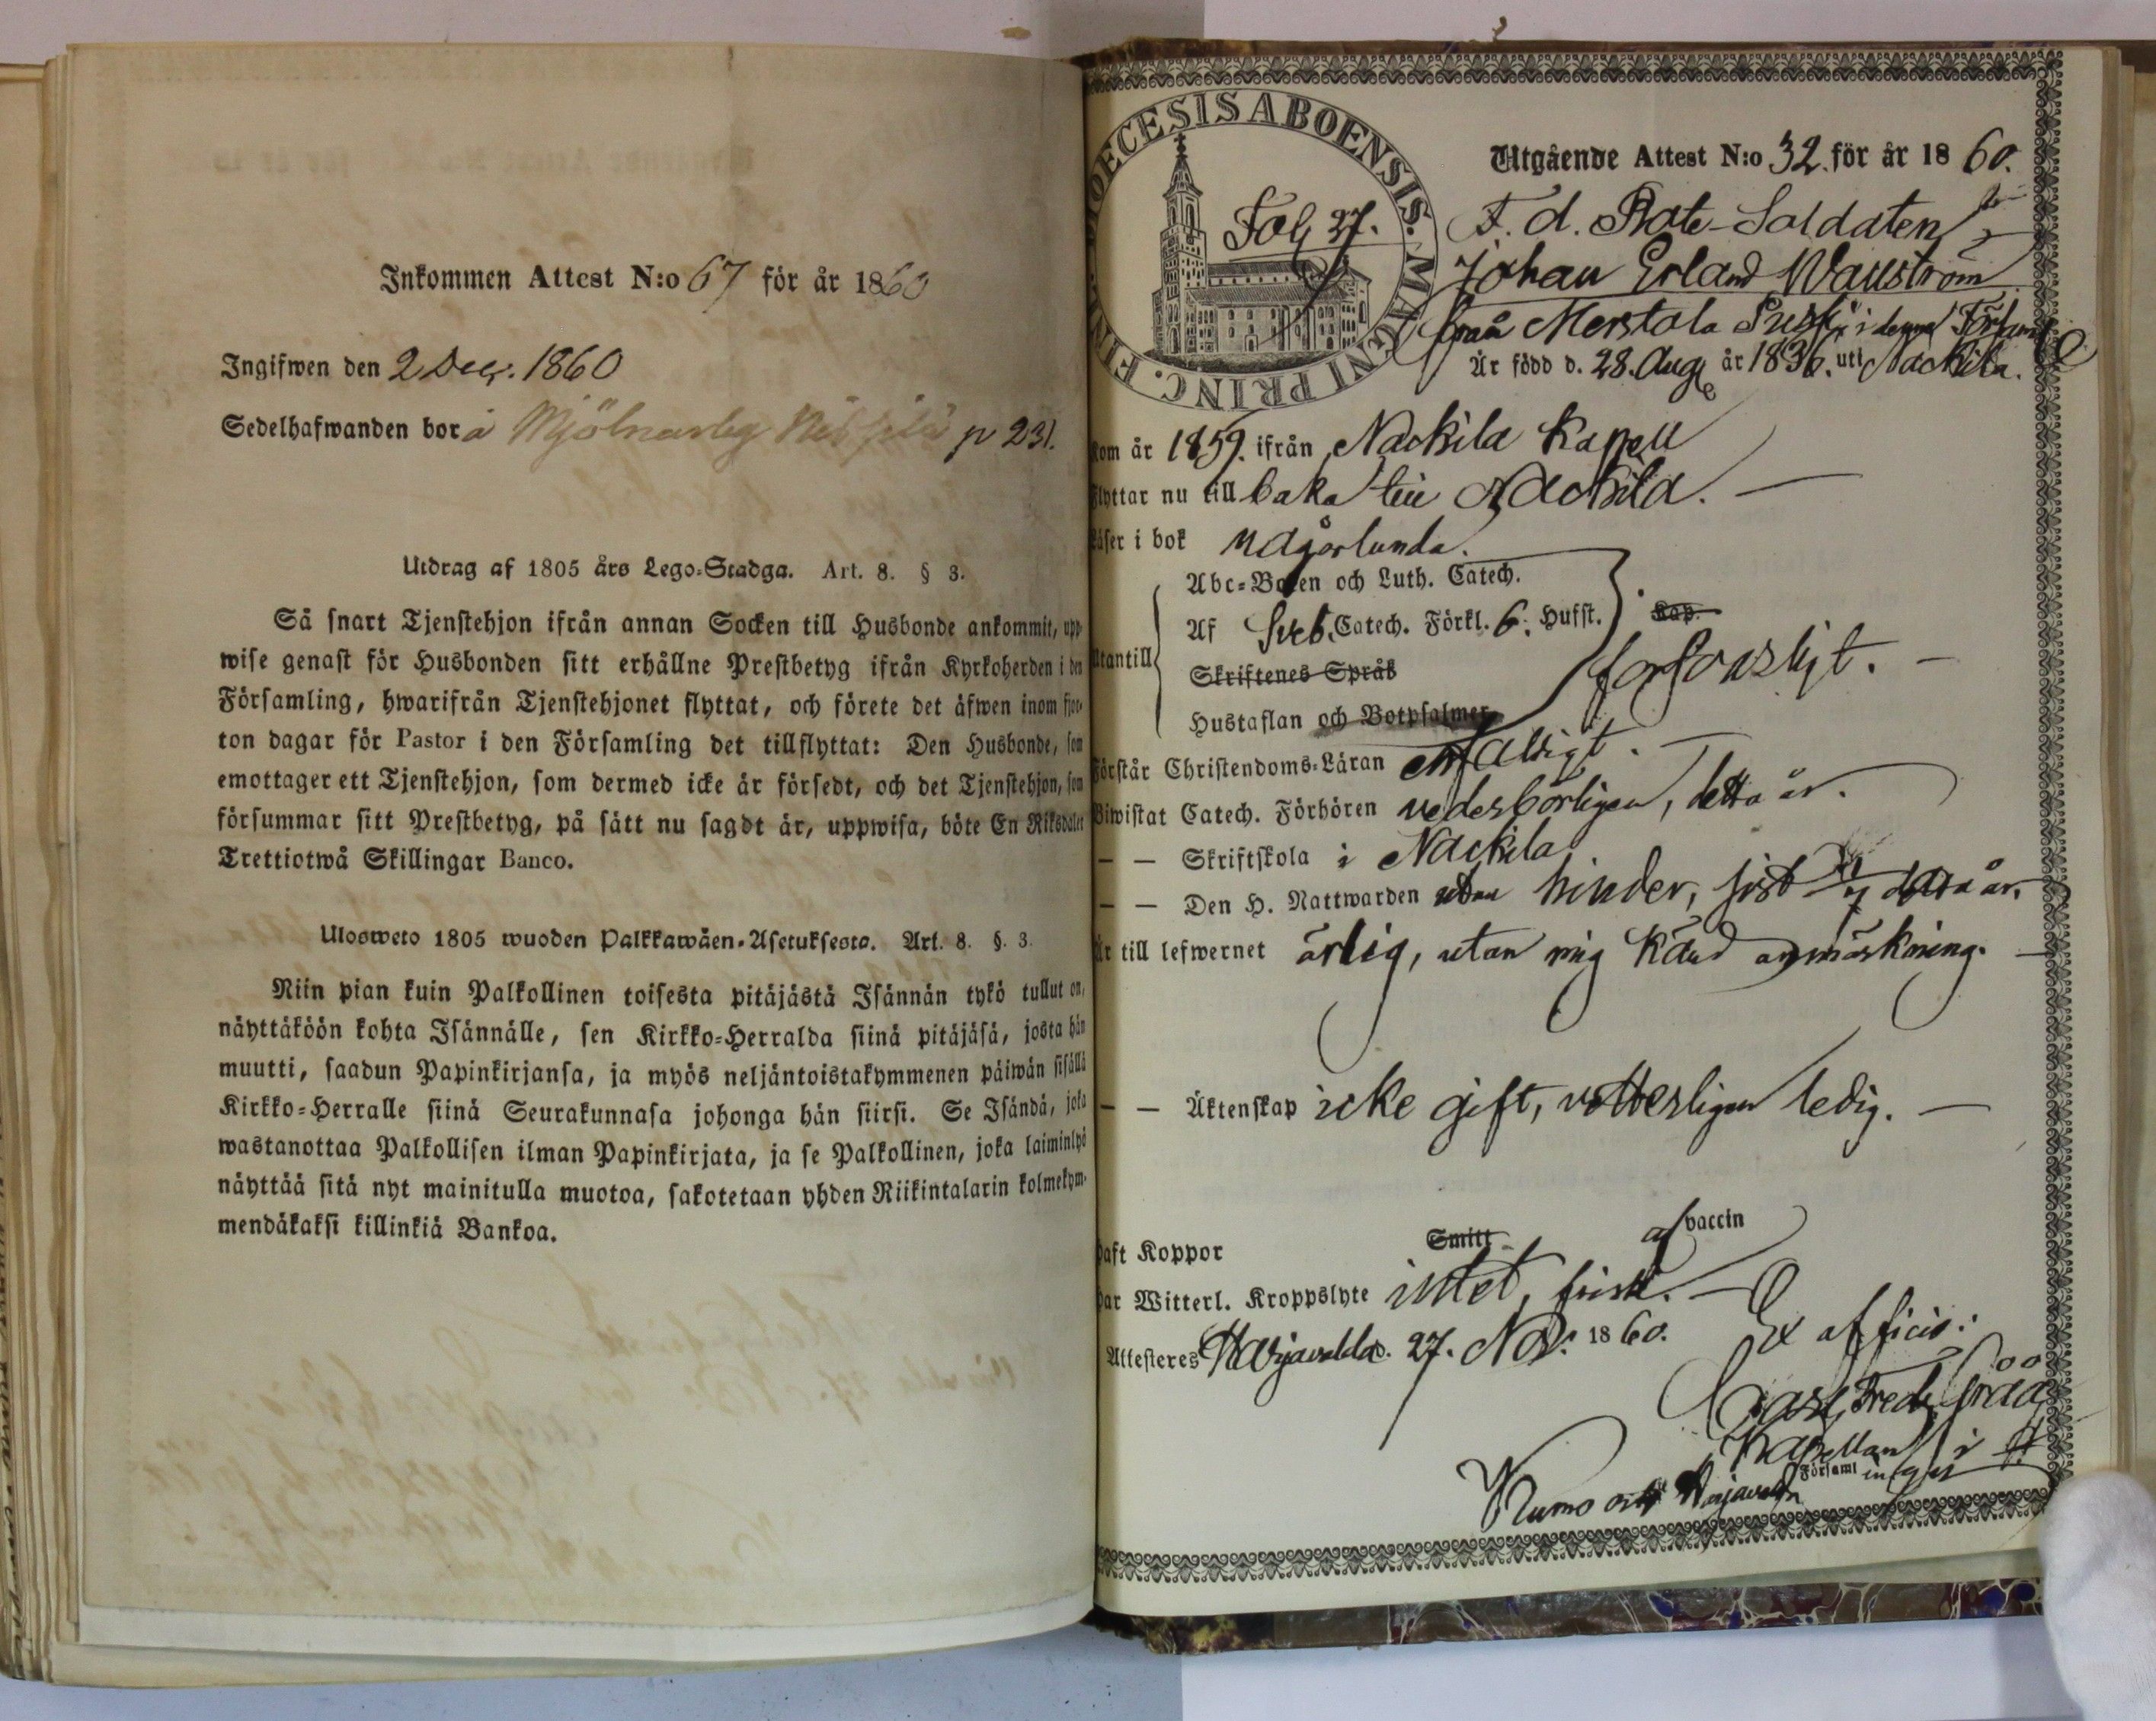 Inkommen Attest N:o 67 för år 1860
Ingifwen den 2 Decr. 1860
Sedelhafwanden bor å Mjölnarbg p 231.
Utdrag af 1805 års Lego-Stadga. Art. 8. § 3.
Så snart Tjenstehjon ifrån annan Socken till Husbonde ankommit, upp-
wise genast för Husbonden sitt erhållne Prestbetyg ifrån Kyrkoherden i den
Församling, hwarifrån Tjenstehjonet flyttat, och förete det äfwen inom fjor-
ton dagar för Pastor i den Församling det tillflyttat: Den Husbonde, som
emottager ett Tjenstehjon, som dermed icke är försedt, och det Tjenstehjon, som
försummar sitt Prestbetyg, på sätt nu sagdt är, uppwisa, böte En Riksdaler
Trettiotwå Skillingar Banco.
Ulosweto 1805 wuoden Palkkawäen-Asetuksesta. Art. 8. §. 3.
Niin pian kuin Palkollinen toisesta pitäjästä Isännän tykö tullut on,
näyttäköön kohta Isännälle, sen Kirkko-Herralda siinä pitäjäsä, josta hän
muutti, saadun Papinkirjansa, ja myös neljäntoistakymmenen päiwän sisällä
Kirkko-Herralle siinä Seurakunnasa johonga hän siirsi. Se Isändä, joka
wastanottaa Palkollisen ilman Papinkirjata, ja se Palkollinen, joka laiminlyö
näyttää sitä nyt mainitulla muotoa, sakotetaan yhden Riikintalarin kolmekym-
mendäkaksi killinkiä Bankoa.
DIOECESIS ABOENSIS. MAGNI PRINC. FINL.
Fol. 27.
Utgående Attest N:o 32. för år 1860.
F. d. Rote-Soldaten
Johan Erland Wallström
från Merstola Suski i denna Församl.
Är född d. 28. Aug. år 1836. uti Nackila.
Kom år 1859. ifrån Nackila Kapell
Flyttar nu till baka till Nackila.
Läser i bok någorlunda.
Utantill
Abc-Boken och Luth. Catech.
Af Sveb. Catech. Förkl. 6. Hufst. Kap.
Skriftenes Språk
Hustaflan och Botpsalmer
försvarligt.
Förstår Christendoms-Läran enfaldigt.
Biwistat Catech. Förhören vederbörligen, detta år.
— — Skriftskola i Nackila
— — Den H. Nattwarden utan hinder, sist detta år.
Är till lefwernet ärlig, utan mig känd anmärkning.
— — Äktenskap icke gift, vetterligen ledig.
Haft Koppor Smitt af vaccin
Har Witterl. Kroppslyte intet, frisk.
Attesteras Harjavalda d. 27. Nov. 1860. Ex officio:
Carl Fredr.
Kapellan i
Kumo och Harjavalda Församlingar